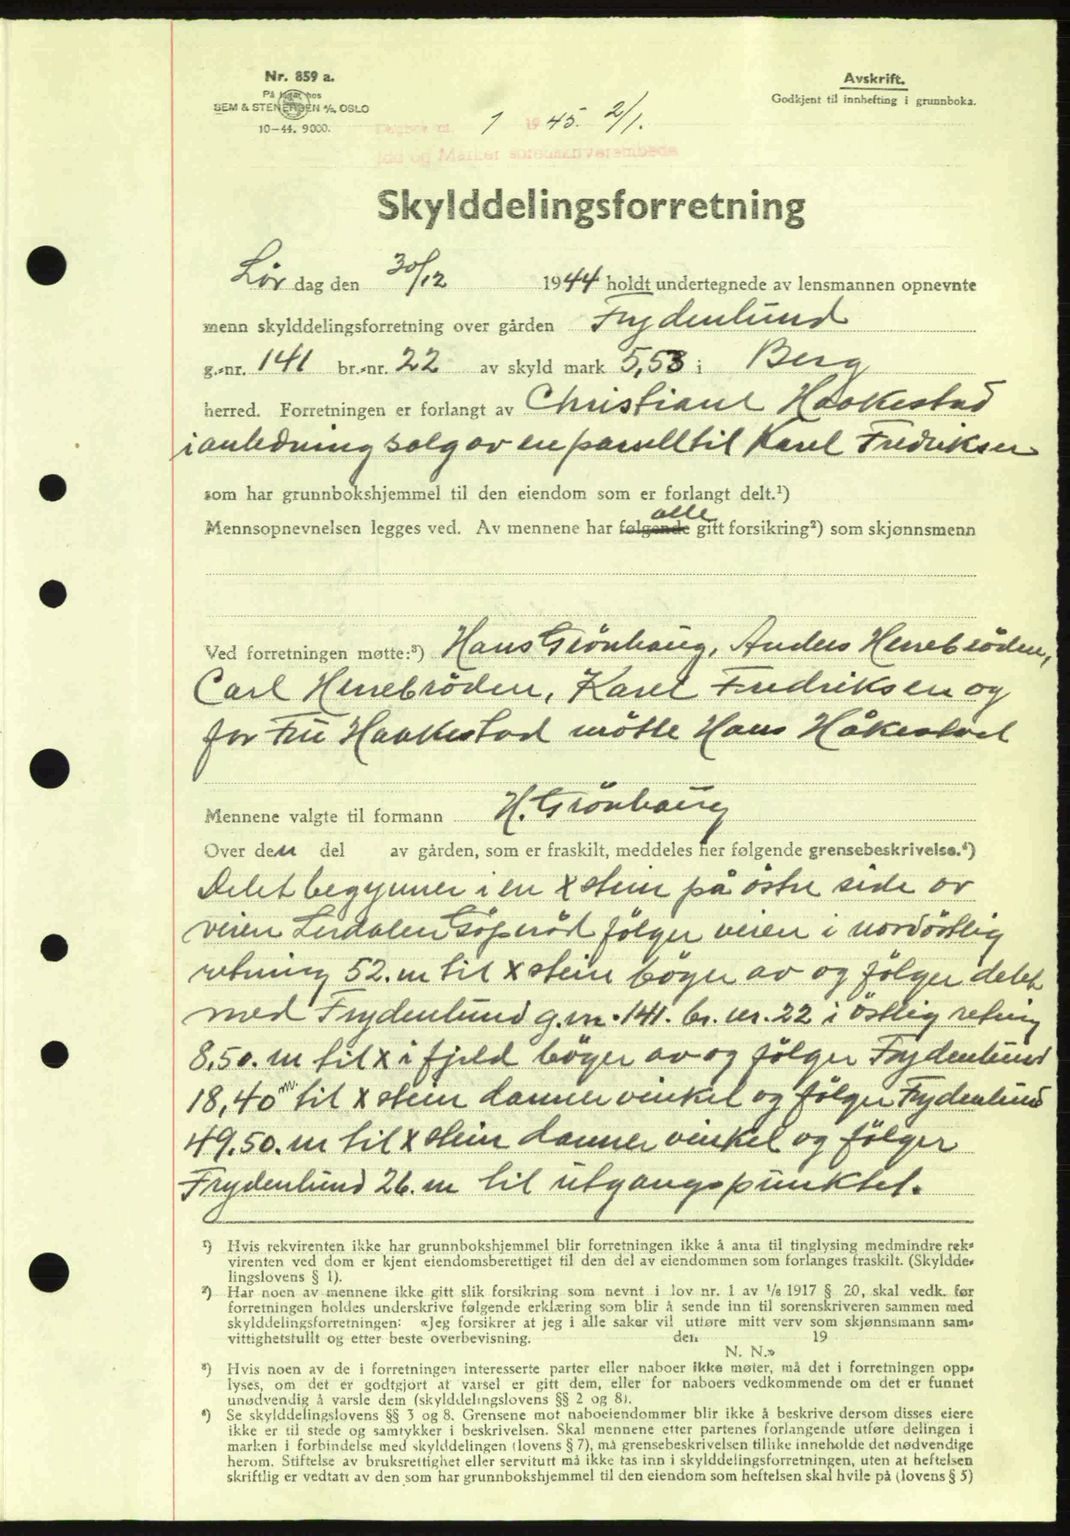 Nr. 859 a.
På lager hos
SEM & STENERSEN A/S, OSLO
10-44. 9000.
Avskrift.
Godkjent til innhefting i grunnboka.
Dagbok nr. 1 1945. 2/1.
Idd og Marker sorenskriverembede
Skylddelingsforretning
Lør dag den 30/12 1944 holdt undertegnede av lensmannen opnevnte
menn skylddelingsforretning over gården Frydenlund
g.-nr. 141 br.-nr. 22 av skyld mark 5,53 i Berg
herred. Forretningen er forlangt av Christiane Haakestad
i anledning salg av en parsell til Karel Fredriksen
som har grunnbokshjemmel til den eiendom som er forlangt delt.¹)
alle
Mennsopnevnelsen legges ved. Av mennene har følgende gitt forsikring²) som skjønnsmenn
Ved forretningen møtte:³) Hans Grönhaug, Anders Herrebröden,
Carl Herrebröden, Karel Fredriksen og
for Fru Haakestad mötte Hans Håkestad
Mennene valgte til formann H. Grönhaug
Over den del av gården, som er fraskilt, meddeles her følgende grensebeskrivelse.⁴)
Delet begynner i en x stein på östre side av
veien Lerdalen Göperöd fölger veien i nordöstlig
retning 52. m til x stein böger av og fölger delet
med Frydenlund g.nr. 141. br. nr. 22 i östlig retning
8,50. m til x i fjeld böger av og fölger Frydenlund
18,40 m. til x stein danner vinkel og fölger Frydenlund
49.50. m til x stein danner vinkel og fölger
Frydenlund 26. m til utgangspunktet.
¹) Hvis rekvirenten ikke har grunnbokshjemmel blir forretningen ikke å anta til tinglysing medmindre rek-
virenten ved dom er kjent eiendomsberettiget til den del av eiendommen som forlanges fraskilt. (Skyldde-
lingslovens § 1).
²) Har noen av mennene ikke gitt slik forsikring som nevnt i lov nr. 1 av 1/6 1917 § 20, skal vedk. før
forretningen holdes underskrive følgende erklæring som blir å sende inn til sorenskriveren sammen med
skylddelingsforretningen: «Jeg forsikrer at jeg i alle saker vil utføre mitt verv som skjønnsmann sam-
vittighetsfullt og etter beste overbevisning. den 19
N. N.»
³) Hvis noen av de i forretningen interesserte parter eller naboer ikke møter, må det i forretningen opp-
lyses, om det er godtgjort at varsel er gitt dem, eller for naboers vedkommende om det er funnet
unødvendig å varsle dem (skylddelingslovens §§ 2 og 8).
⁴) Se skylddelingslovens §§ 3 og 8. Grensene mot naboeiendommer blir ikke å beskrive dersom disses eiere
ikke er til stede og samtykker i beskrivelsen. Skal mennene etter partenes forlangende utføre delingen i
marken i forbindelse med skylddelingen (lovens § 7), må grensebeskrivelsen tillike inneholde det nødvendige
herom. Stiftelse av bruksrettighet eller servitutt må ikke tas inn i skylddelingsforretningen, uten at heftelsen
skriftlig er vedtatt av den som har grunnbokshjemmel til den eiendom som heftelsen skal hvile på (lovens § 5)